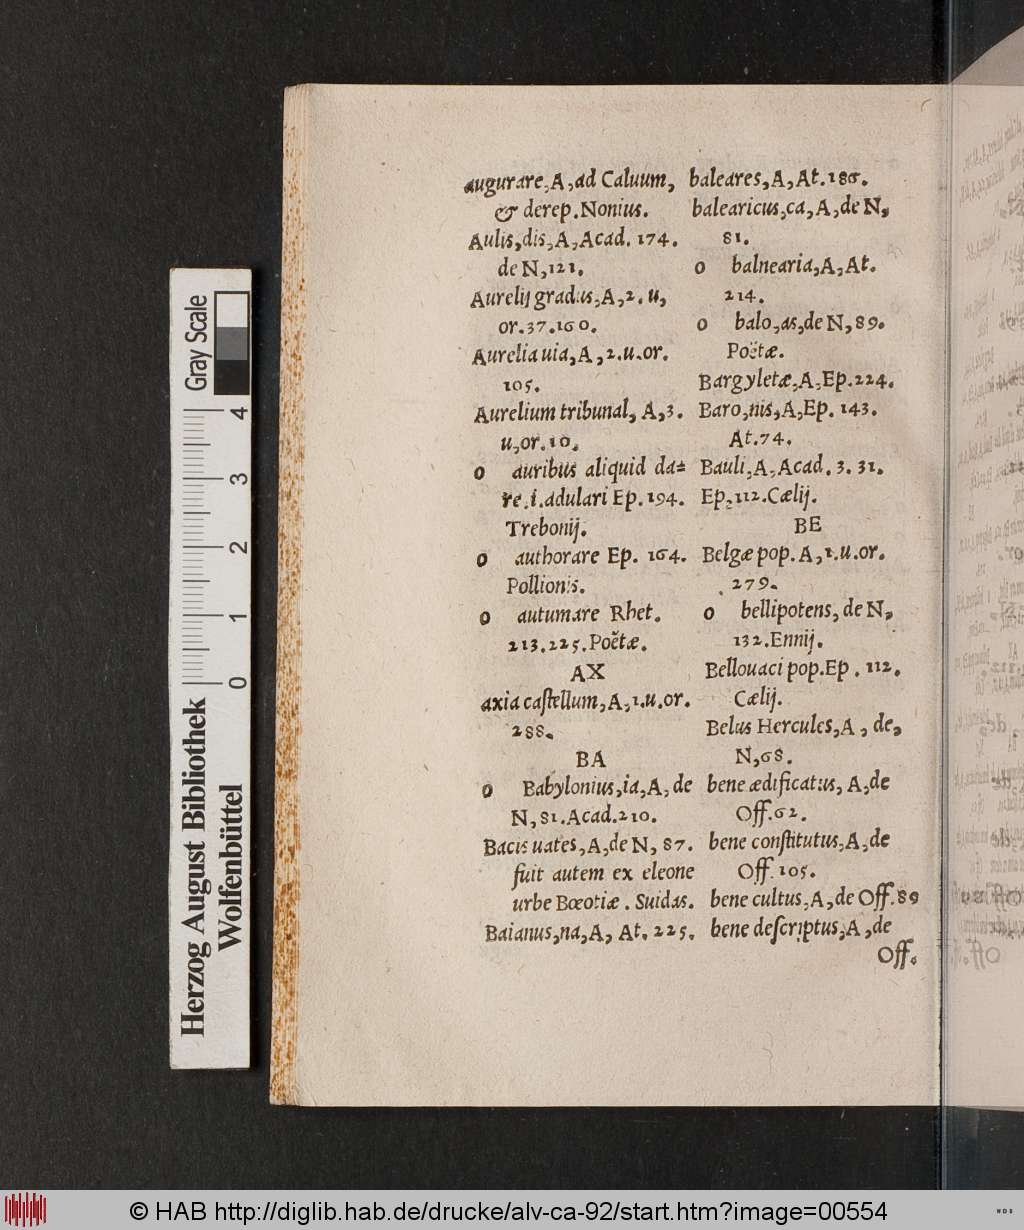 augurare, A, ad Caluum,
& derep. Nonius.
Aulis, dis, A, Acad. 174.
de N, 121.
Aurelij gradus, A, 2. u,
or. 37. 160.
Aurelia uia, A, 2. u. or.
105.
Aurelium tribunal, A, 3.
u, or. 10.
o auribus aliquid da=
re. i. adulari Ep. 194.
Trebonij.
o authorare Ep. 164.
Pollionis.
o autumare Rhet.
213. 225. Poëtæ.
AX
axia caſtellum, A, 1. u. or.
288.
BA
o Babylonius, ia, A, de
N, 81. Acad. 210.
Bacis uates, A, de N, 87.
fuit autem ex eleone
urbe Bœotiæ. Suidas.
Baianus, na, A, At. 225.
baleares, A, At. 186.
balearicus, ca, A, de N,
81.
o balnearia, A, At.
214.
o balo, as, de N, 89.
Poëtæ.
Bargyletæ, A, Ep. 224.
Baro, nis, A, Ep. 143.
At. 74.
Bauli, A, Acad. 3. 31.
Ep, 112. Cælij.
BE
Belgæ pop. A, 1. u. or.
279.
o bellipotens, de N,
132. Ennij.
Bellouaci pop. Ep. 112.
Cælij.
Belus Hercules, A, de,
N, 68.
bene ædificatus, A, de
Off. 62.
bene conſtitutus, A, de
Off. 105.
bene cultus, A, de Off. 89
bene deſcriptus, A, de
Off.
Gray Scale
4
3
2
1
0
Herzog August Bibliothek
Wolfenbüttel
© HAB http://diglib.hab.de/drucke/alv-ca-92/start.htm?image=00554